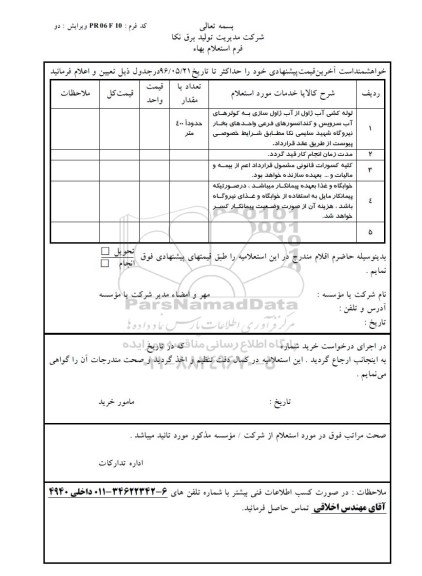 بسمه تعالی
کد فرم : PR 06 F 10 ویرایش : دو
شرکت مدیریت تولید برق نکا
فرم استعلام بهاء
خواهشمنداست آخرین‌قیمت‌پیشنهادی خود را حداکثر تا تاریخ ۹۶/۰۵/۲۱ درجدول ذیل تعیین و اعلام فرمائید
ردیف شرح کالایا خدمات مورد استعلام تعداد یا مقدار قیمت واحد قیمت‌کل ملاحظات
۱ لوله کشی آب ژاول از آب ژاول سازی به کولرهای
آب سرویس و کندانسورهای فرعی واحدهای بخار
نیروگاه شهید سلیمی نکا مطابق شرایط خصوصی
پیوست از طریق عقد قرارداد.
حدوداً ۴۰۰ متر
۲ مدت زمان انجام کار قید گردد.
۳ کلیه کسورات قانونی مشمول قرارداد اعم از بیمه و
مالیات و ... بعهده سازنده خواهد بود.
۴ خوابگاه و غذا بعهده پیمانکار میباشد . درصورتیکه
پیمانکار مایل به استفاده از خوابگاه و غذای نیروگاه
باشد . هزینه آن از صورت وضعیت پیمانکار کسر
خواهد شد.
۵
بدینوسیله حاضرم اقلام مندرج در این استعلامیه را طبق قیمتهای پیشنهادی فوق تحویل
انجام
نمایم .
نام شرکت یا مؤسسه : مهر و امضاء مدیر شرکت یا مؤسسه
آدرس و تلفن :
تاریخ :
ParsNamadData
مرکز فرآوری اطلاعات پارس نماد داده‌ها
در اجرای درخواست خرید شماره که در تاریخ
به اینجانب ارجاع گردید . این استعلامیه در کمال دقت تنظیم و اخذ گردید و صحت مندرجات آن را گواهی
می‌نمایم .
تاریخ : مامور خرید
صحت مراتب فوق در مورد استعلام از شرکت / مؤسسه مذکور مورد تائید میباشد .
اداره تدارکات
ملاحظات : در صورت کسب اطلاعات فنی بیشتر با شماره تلفن های ۶-۳۴۶۲۲۳۴۲-۰۱۱ داخلی ۴۹۴۰
آقای مهندس اخلاقی تماس حاصل فرمائید.